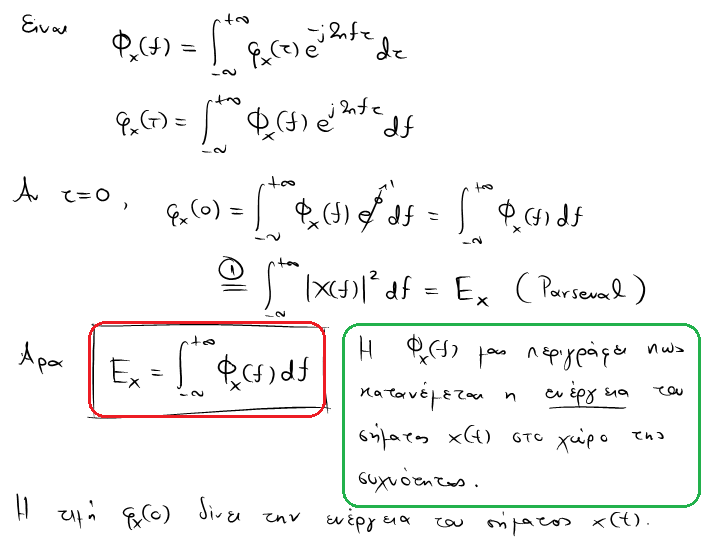 Είναι Φₓ(f) = ∫_{-∞}^{+∞} φₓ(τ) e^{-j2πfτ} dτ
φₓ(τ) = ∫_{-∞}^{+∞} Φₓ(f) e^{j2πfτ} df
Αν τ=0, φₓ(0) = ∫_{-∞}^{+∞} Φₓ(f) e⁰ ↗1 df = ∫_{-∞}^{+∞} Φₓ(f) df
①= ∫_{-∞}^{+∞} |X(f)|² df = Eₓ (Parseval)
Άρα Eₓ = ∫_{-∞}^{+∞} Φₓ(f) df
Η Φₓ(f) μας περιγράφει πώς
κατανέμεται η ενέργεια του
σήματος x(t) στο χώρο της
συχνότητας.
Η τιμή φₓ(0) δίνει την ενέργεια του σήματος x(t).